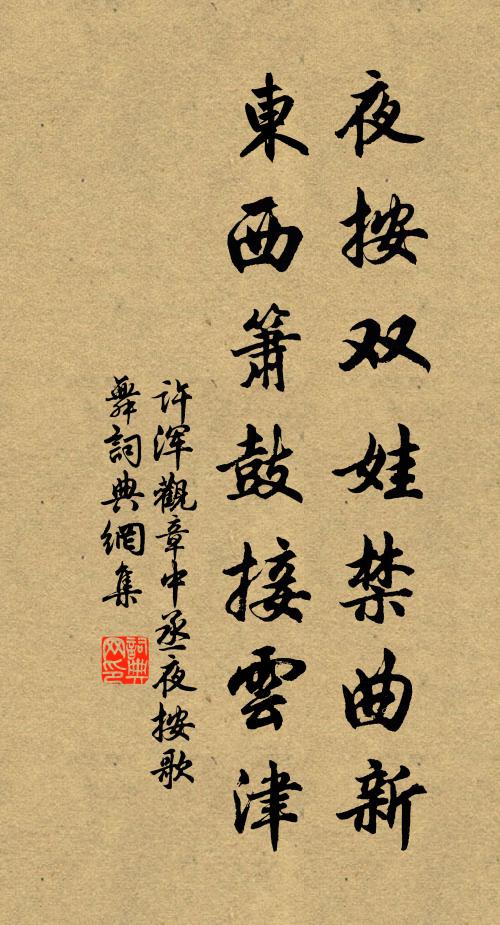 夜按双娃禁曲新
東西簫鼓接雲津
許渾觀章中丞夜按歌
舞詞典網集
詞典网印